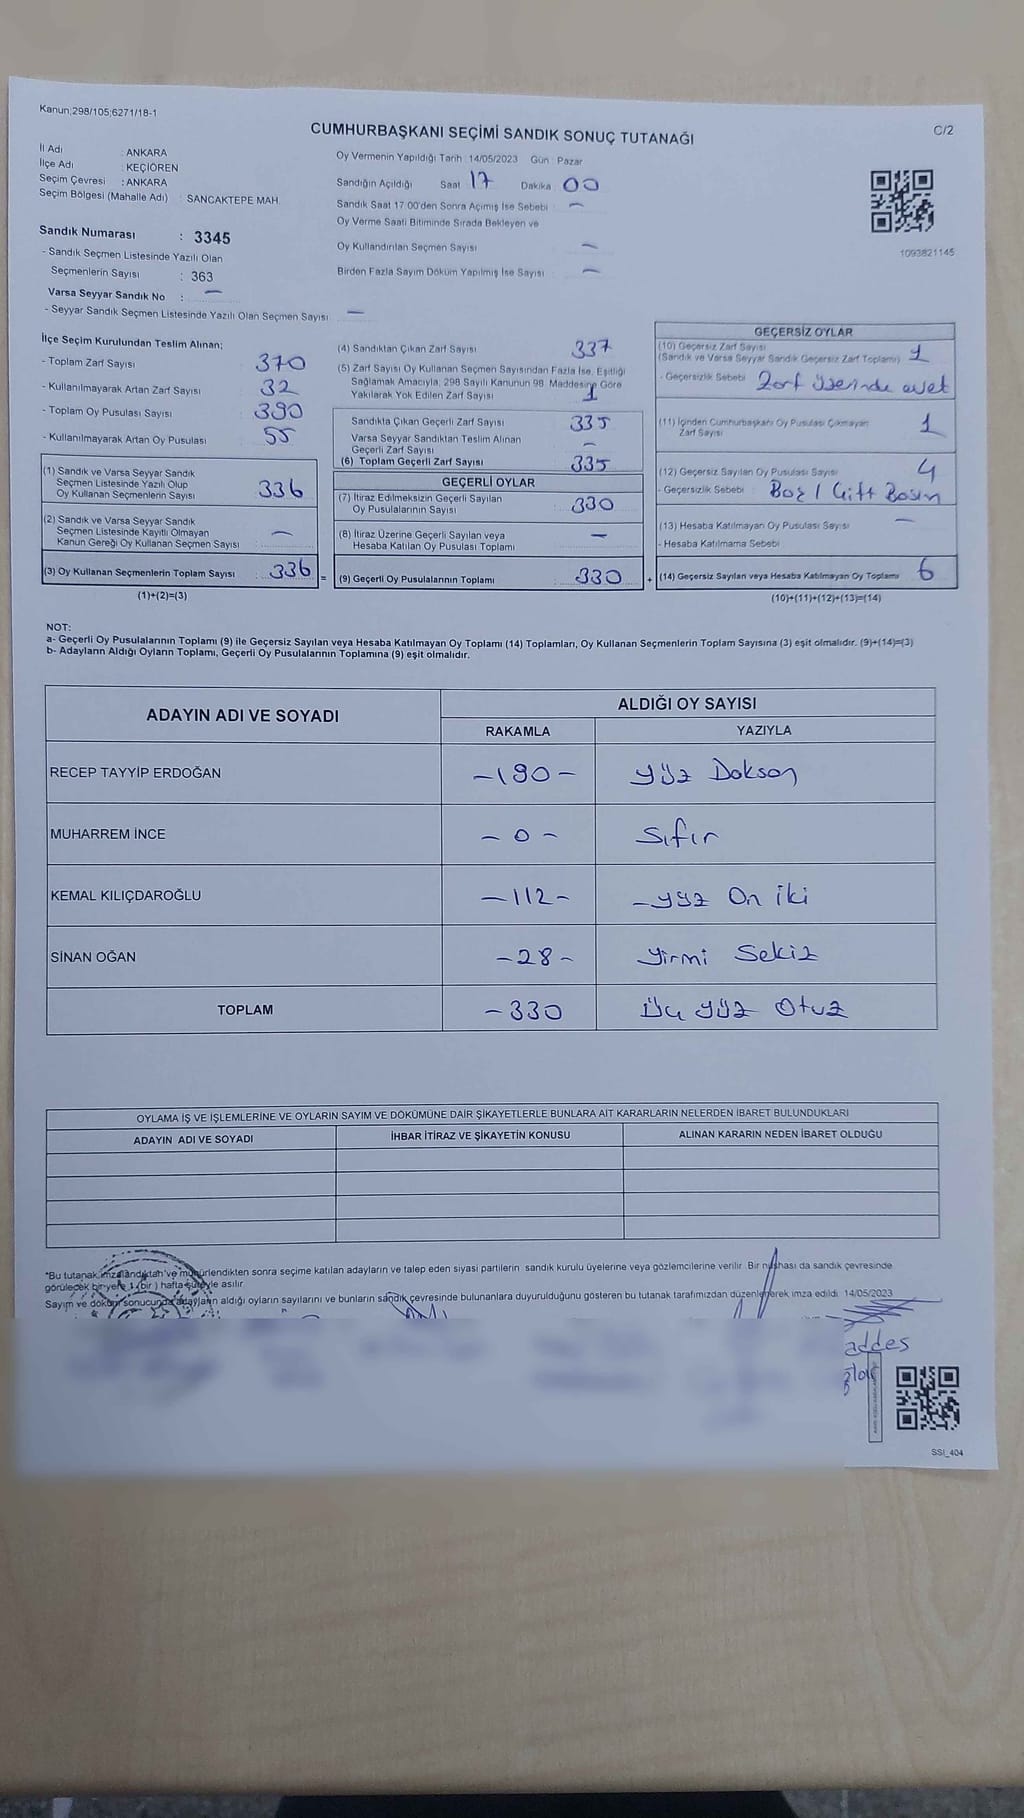 Kanun;298/105;6271/18-1
CUMHURBAŞKANI SEÇİMİ SANDIK SONUÇ TUTANAĞI
C/2
İl Adı : ANKARA
İlçe Adı : KEÇİÖREN
Seçim Çevresi : ANKARA
Seçim Bölgesi (Mahalle Adı) : SANCAKTEPE MAH.
Sandık Numarası : 3345
- Sandık Seçmen Listesinde Yazılı Olan
Seçmenlerin Sayısı : 363
Varsa Seyyar Sandık No : —
- Seyyar Sandık Seçmen Listesinde Yazılı Olan Seçmen Sayısı —
Oy Vermenin Yapıldığı Tarih : 14/05/2023 Gün : Pazar
Sandığın Açıldığı Saat 17 Dakika 00
Sandık Saat 17:00'den Sonra Açımış İse Sebebi —
Oy Verme Saati Bitiminde Sırada Bekleyen ve
Oy Kullandırılan Seçmen Sayısı —
Birden Fazla Sayım Döküm Yapılmış İse Sayısı —
1093821145
İlçe Seçim Kurulundan Teslim Alınan;
- Toplam Zarf Sayısı 370
- Kullanılmayarak Artan Zarf Sayısı 32
- Toplam Oy Pusulası Sayısı 390
- Kullanılmayarak Artan Oy Pusulası 55
(1) Sandık ve Varsa Seyyar Sandık
Seçmen Listesinde Yazılı Olup
Oy Kullanan Seçmenlerin Sayısı 336
(2) Sandık ve Varsa Seyyar Sandık
Seçmen Listesinde Kayıtlı Olmayan
Kanun Gereği Oy Kullanan Seçmen Sayısı —
(3) Oy Kullanan Seçmenlerin Toplam Sayısı : 336 =
(1)+(2)=(3)
(4) Sandıktan Çıkan Zarf Sayısı 337
(5) Zarf Sayısı Oy Kullanan Seçmen Sayısından Fazla İse, Eşitliği
Sağlamak Amacıyla, 298 Sayılı Kanunun 98. Maddesine Göre
Yakılarak Yok Edilen Zarf Sayısı 1
Sandıkta Çıkan Geçerli Zarf Sayısı 335
Varsa Seyyar Sandıktan Teslim Alınan
Geçerli Zarf Sayısı —
(6) Toplam Geçerli Zarf Sayısı 335
GEÇERLİ OYLAR
(7) İtiraz Edilmeksizin Geçerli Sayılan
Oy Pusulalarının Sayısı 330
(8) İtiraz Üzerine Geçerli Sayılan veya
Hesaba Katılan Oy Pusulası Toplamı —
(9) Geçerli Oy Pusulalarının Toplamı 330 +
GEÇERSİZ OYLAR
(10) Geçersiz Zarf Sayısı
(Sandık ve Varsa Seyyar Sandık Geçersiz Zarf Toplamı) 1
- Geçersizlik Sebebi Zarf üzerinde evet
(11) İçinden Cumhurbaşkanı Oy Pusulası Çıkmayan
Zarf Sayısı 1
(12) Geçersiz Sayılan Oy Pusulası Sayısı 4
- Geçersizlik Sebebi Boş / Çift Basım
(13) Hesaba Katılmayan Oy Pusulası Sayısı —
- Hesaba Katılmama Sebebi
(14) Geçersiz Sayılan veya Hesaba Katılmayan Oy Toplamı 6
(10)+(11)+(12)+(13)=(14)
NOT:
a- Geçerli Oy Pusulalarının Toplamı (9) ile Geçersiz Sayılan veya Hesaba Katılmayan Oy Toplamı (14) Toplamları, Oy Kullanan Seçmenlerin Toplam Sayısına (3) eşit olmalıdır. (9)+(14)=(3)
b- Adayların Aldığı Oyların Toplamı, Geçerli Oy Pusulalarının Toplamına (9) eşit olmalıdır.
ADAYIN ADI VE SOYADI
ALDIĞI OY SAYISI
RAKAMLA YAZIYLA
RECEP TAYYİP ERDOĞAN —190— Yüz Doksan
MUHARREM İNCE —0— Sıfır
KEMAL KILIÇDAROĞLU —112— —Yüz On iki
SİNAN OĞAN —28— Yirmi Sekiz
TOPLAM —330 Üç Yüz Otuz
OYLAMA İŞ VE İŞLEMLERİNE VE OYLARIN SAYIM VE DÖKÜMÜNE DAİR ŞİKAYETLERLE BUNLARA AİT KARARLARIN NELERDEN İBARET BULUNDUKLARI
ADAYIN ADI VE SOYADI İHBAR İTİRAZ VE ŞİKAYETİN KONUSU ALINAN KARARIN NEDEN İBARET OLDUĞU
*Bu tutanak imzalandıktan ve mühürlendikten sonra seçime katılan adayların ve talep eden siyasi partilerin sandık kurulu üyelerine veya gözlemcilerine verilir. Bir nüshası da sandık çevresinde
görülecek bir yere 1 (bir) hafta süreyle asılır.
Sayım ve döküm sonucunda adayların aldığı oyların sayılarını ve bunların sandık çevresinde bulunanlara duyurulduğunu gösteren bu tutanak tarafımızdan düzenlenerek imza edildi. 14/05/2023
addes
SSI_404